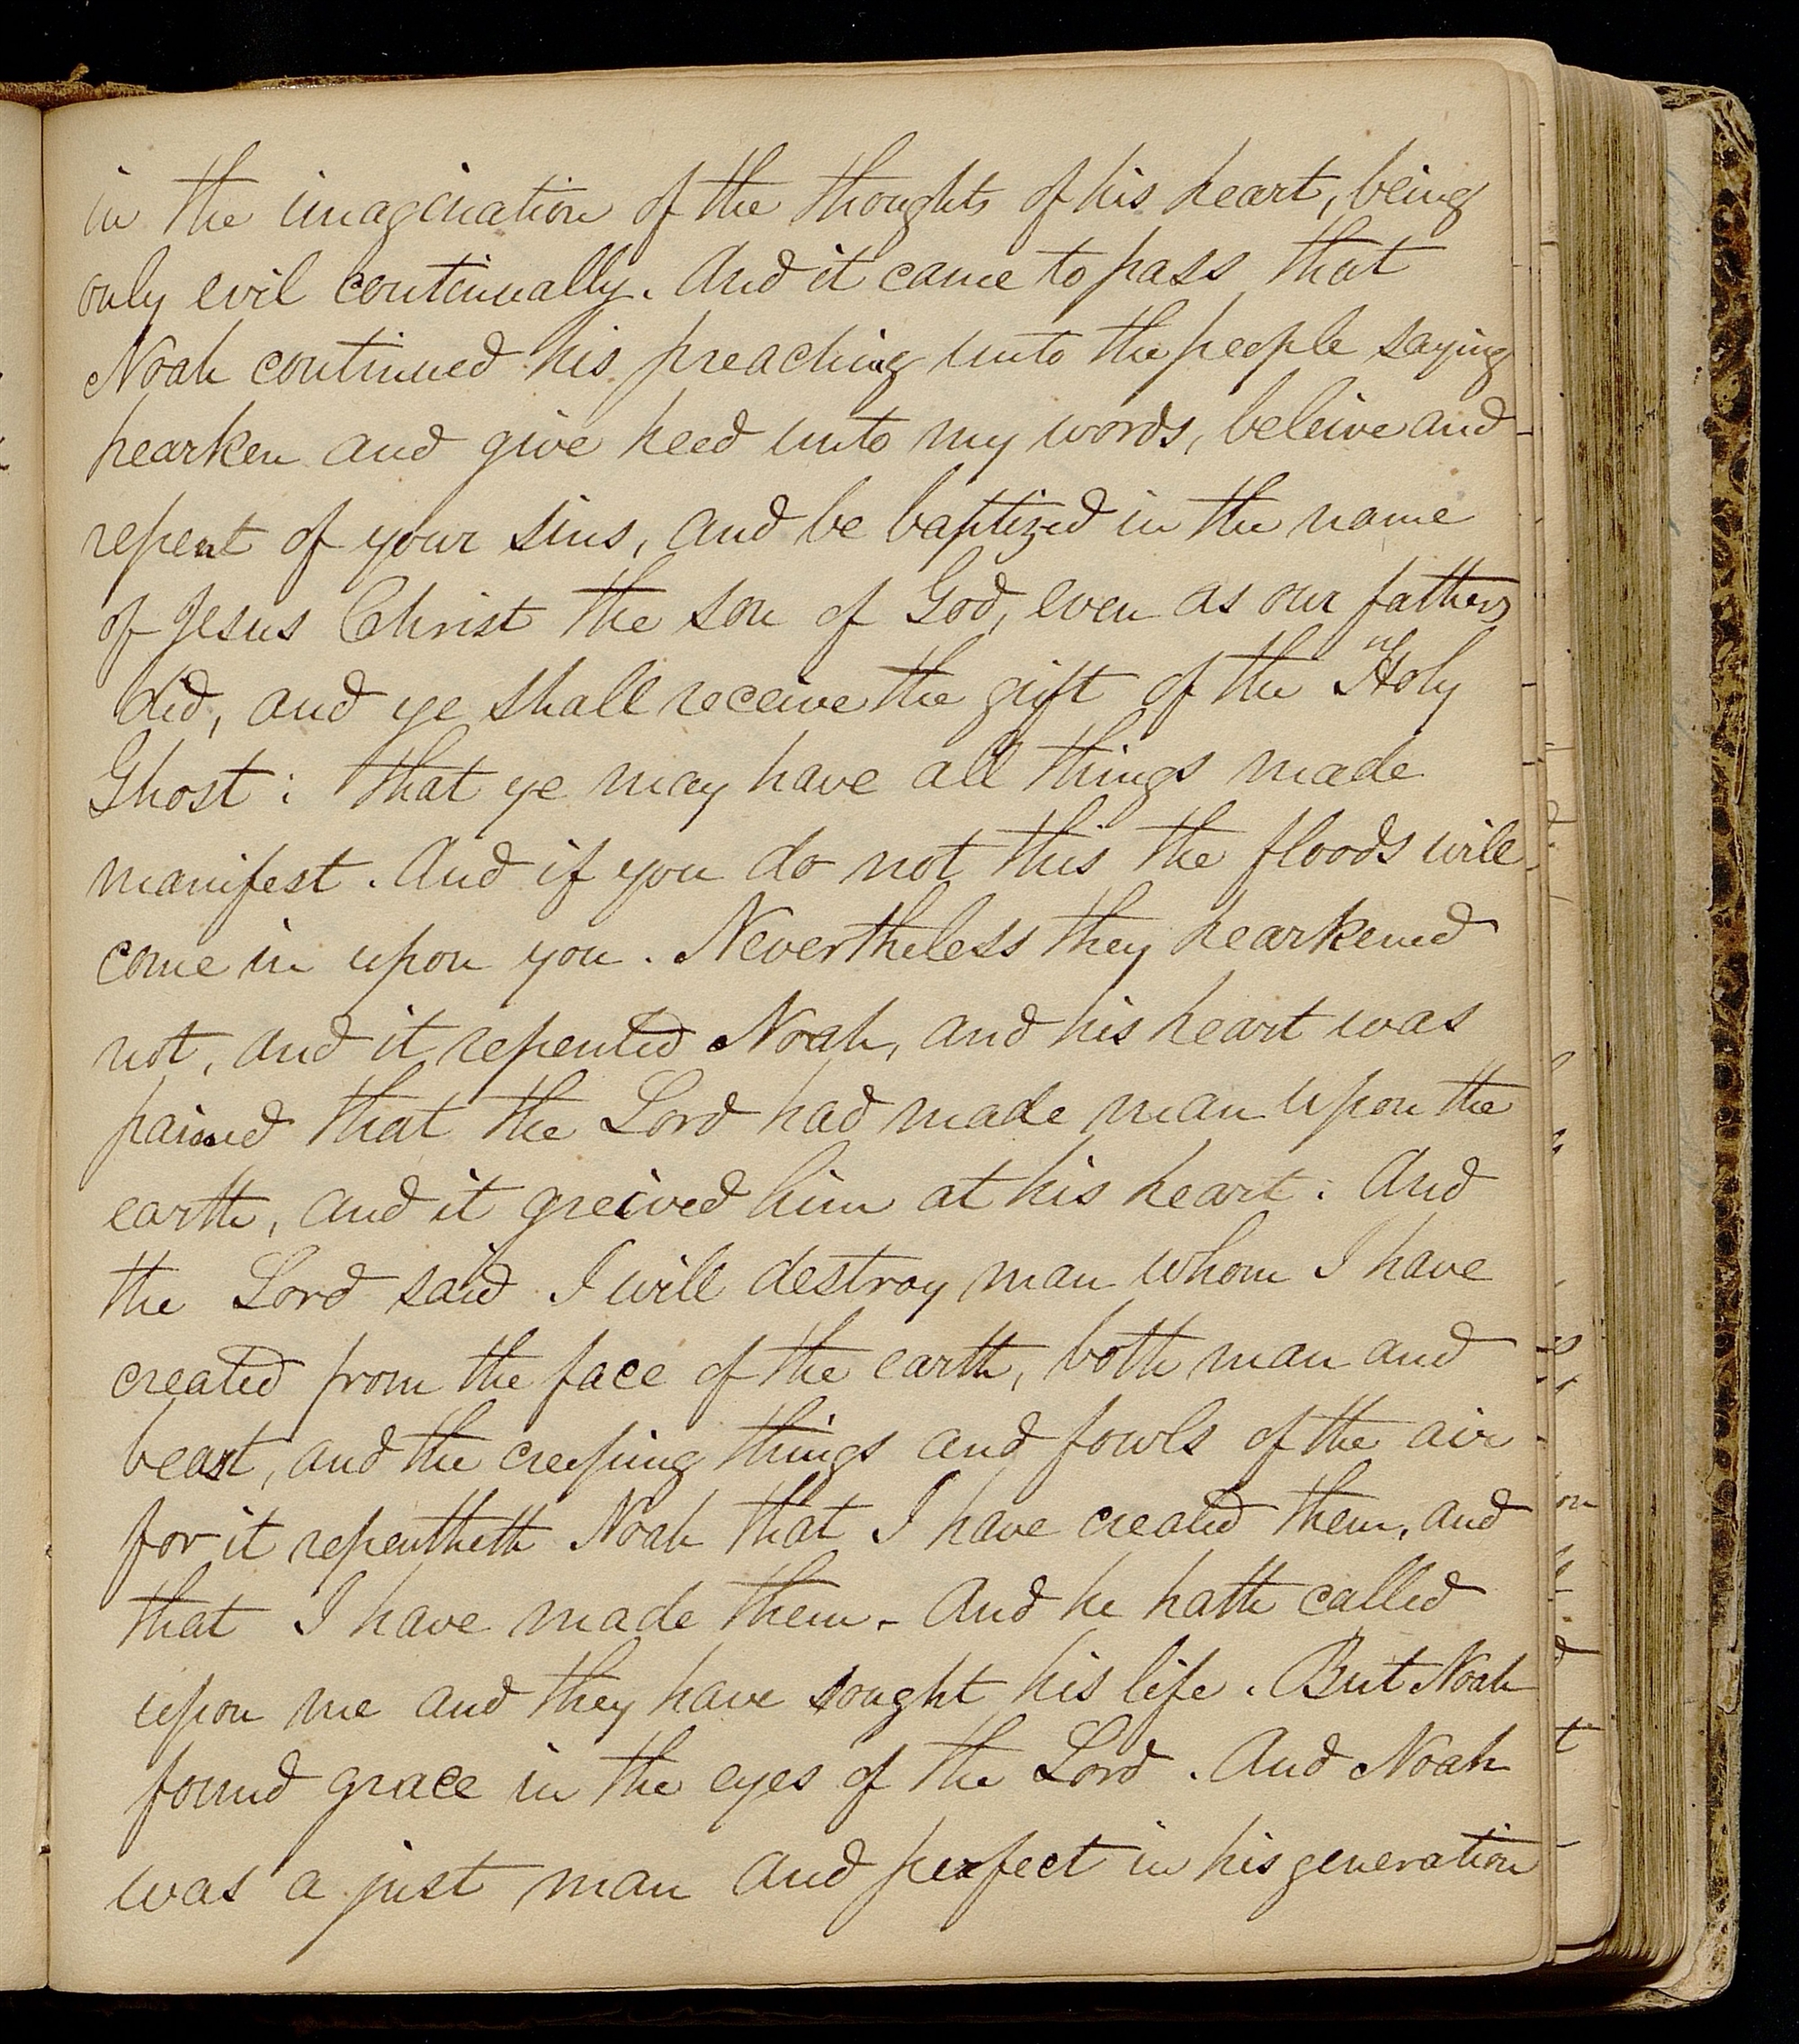 in the imagination of the thoughts of his heart, being
only evil continually. And it came to pass that
Noah continued his preaching unto the people saying
hearken and give heed unto my words, beleive and
repent of your sins, and be baptized in the name
of Jesus Christ the son of God, even as our fathers
did, and ye shall receive the gift of the Holy
Ghost: that ye may have all things made
manifest. And if you do not this the floods will
come in upon you. Nevertheless they hearkened
not, and it repented Noah, and his heart was
pained that the Lord had made man upon the
earth, and it greived him at his heart: And
the Lord said I will destroy man whom I have
created from the face of the earth, both man and
beast, and the creeping things and fowls of the air
for it repentheth Noah that I have created them, and
that I have made them. And he hath called
upon me and they have sought his life. But Noah
found grace in the eyes of the Lord. And Noah
was a just man and perfect in his generation